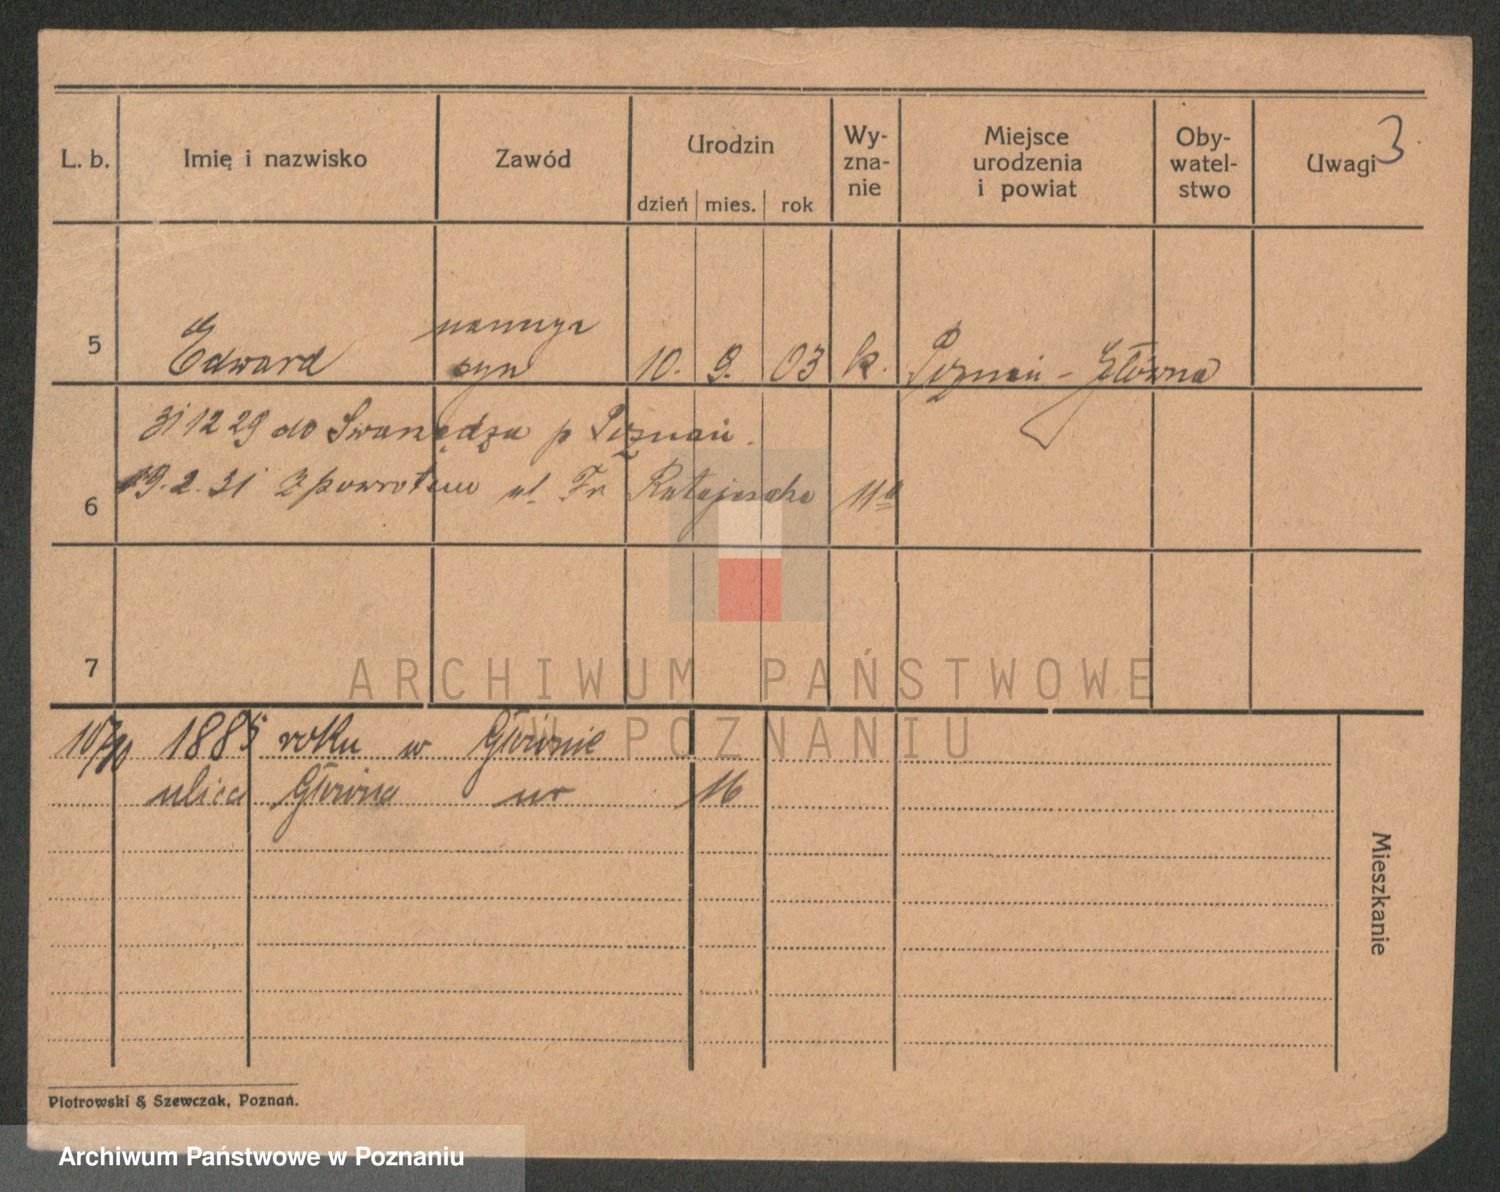 3
L. b. Imię i nazwisko Zawód Urodzin dzień mies. rok Wy-zna-nie Miejsce urodzenia i powiat Oby-watel-stwo Uwagi
5 Edward syn 10. 9. 03 k. Poznań - Główna
31 12 29 do Swarzędza p Poznań.
6 19.2.31 z powrotem ul. Fr Ratajczaka 11a
7
ARCHIWUM PAŃSTWOWE
W POZNANIU
1885 roku w Głównie
ulica Główna nr 16
Mieszkanie
Piotrowski & Szewczak, Poznań.
Archiwum Państwowe w Poznaniu